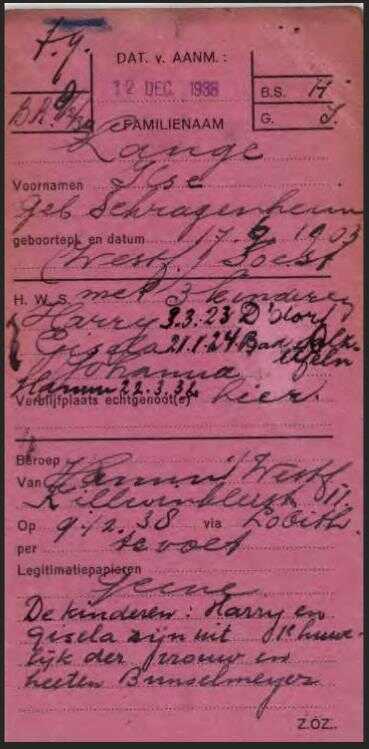 F.y.
DAT. v. AANM.:
12 DEC. 1938
B.S. H
B.R. 9/2/39
G. J.
FAMILIENAAM
Lange
Voornamen Ilse
geb Schragenheim
geboortepl. en datum 17.9.1903
(Westf.) Soest
H. W. S. met 3 kinderen
Harry 3.3.23 D'dorf
Gisela 21.1.24 Bad
Johanna
Hamm 22.3.36
Verblijfplaats echtgenoot(e) hier.
Beroep
Van Hamm i/Westf.
11
Op 9.12.38 via Lobith
per te voet
Legitimatiepapieren
Geene
De kinderen: Harry en
Gisela zijn uit 1e huwe-
lijk der vrouw en
heeten Bunselmeyer
Z.O.Z.